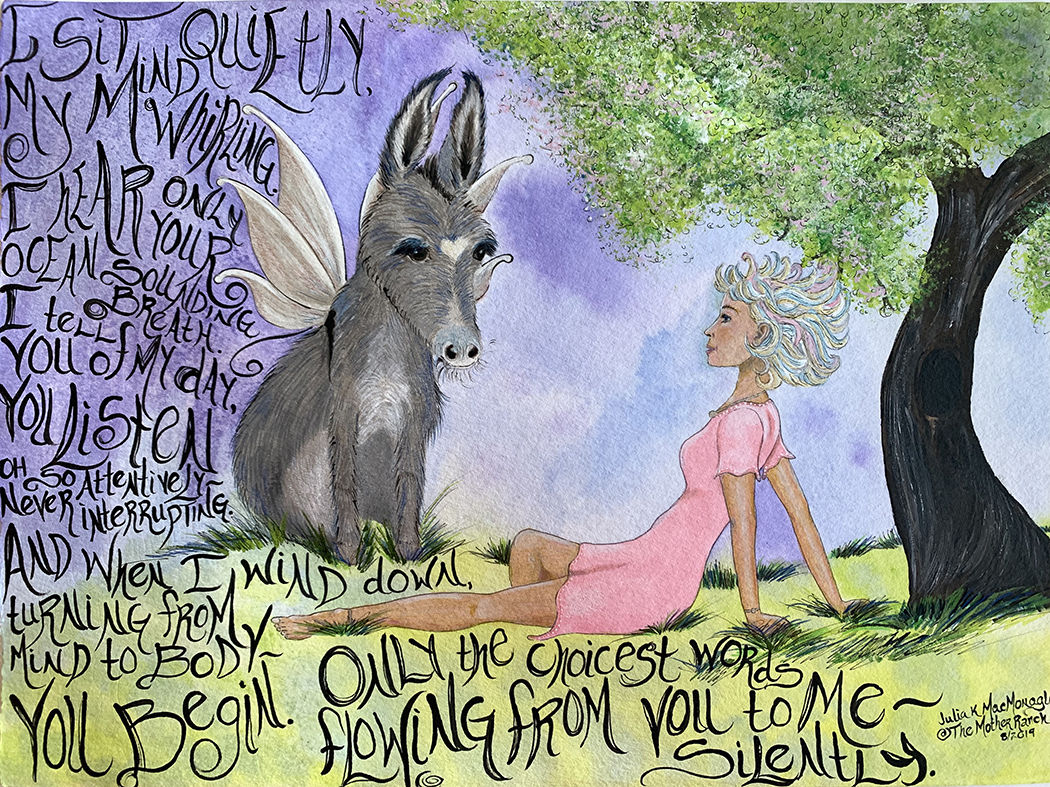 I SIT QUIETLY,
MY MIND
WHIRLING.
I HEAR ONLY
YOUR
OCEAN SOUNDING
BREATH.
I tELL
YOU Of MY dAY,
YOU LiStEN
OH SO AttENtivELY~
NEVER iNtERRUPTING.
AND WHEN I WIND down,
tURNING fROM MY
MIND to BODY~
YOU BEGIN. ONLY tHE CHOICESt WORdS
fLOWING fROM YOU to ME~
SiLENtLY.
Julia K MacMonagl
@The Mother Ranch
8/2019